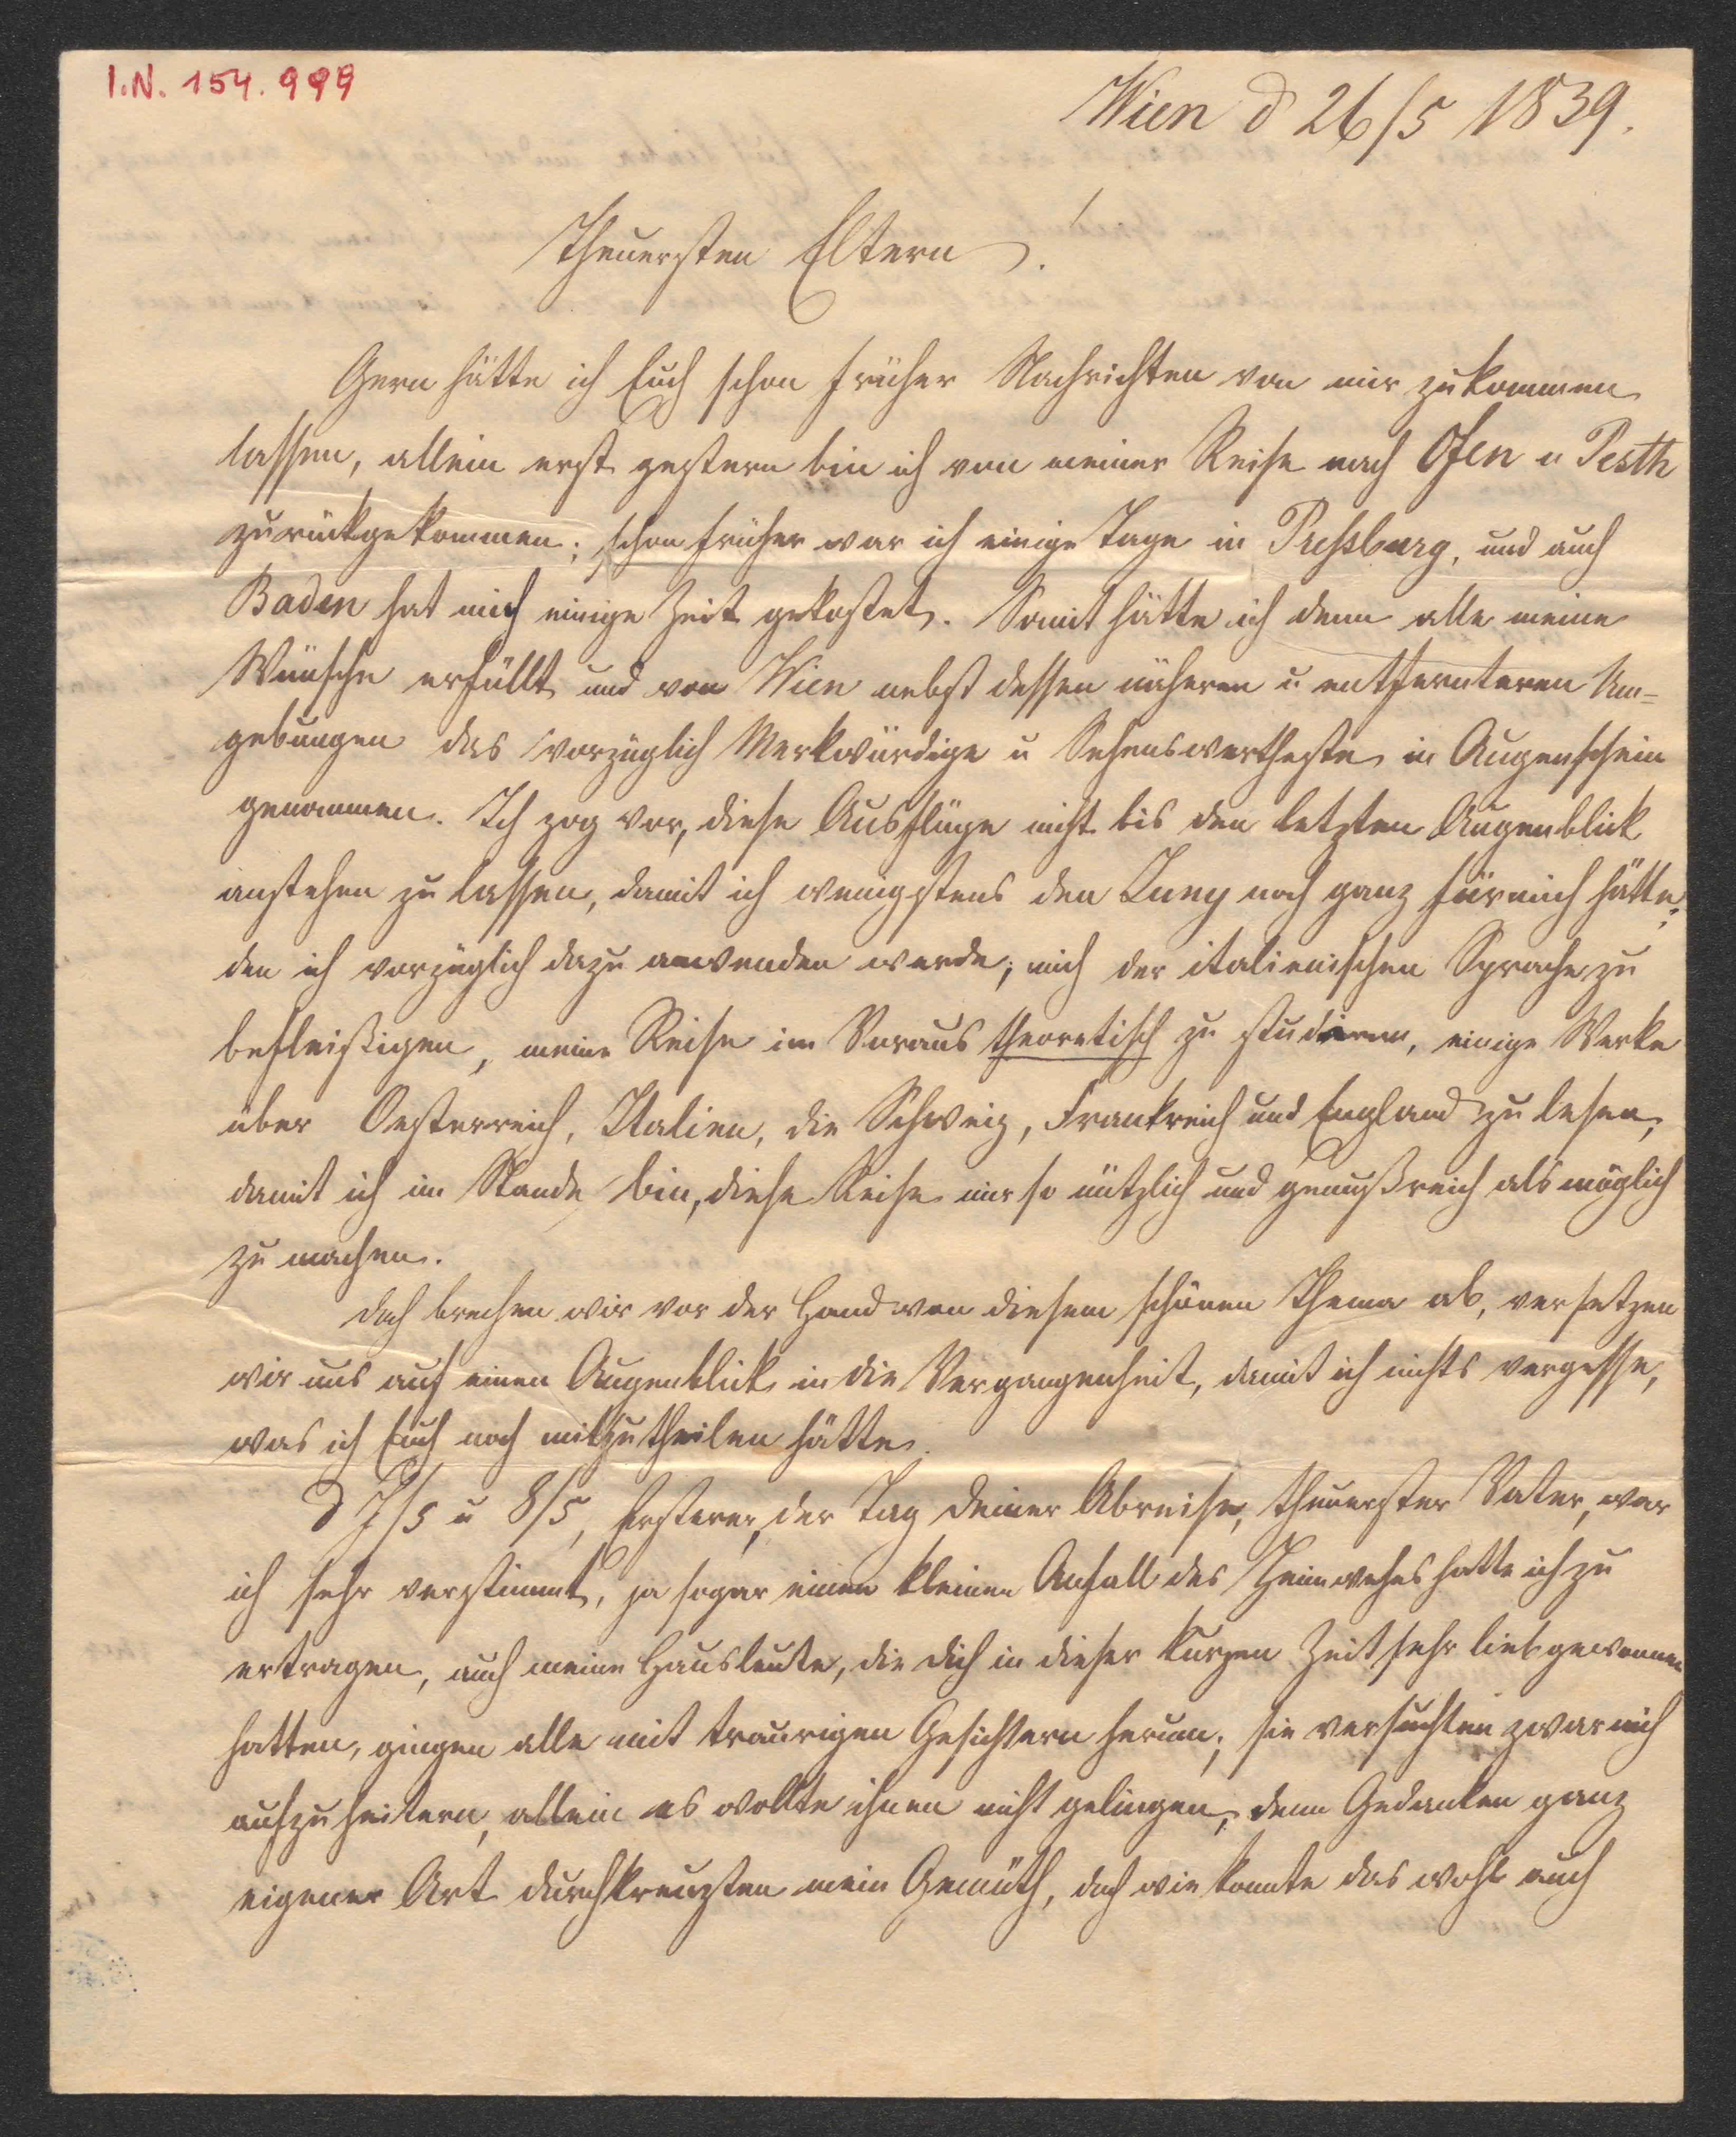 I.N. 154.999
Wien d 26/5 1839.
Theuersten Eltern!
Gern hätte ich Euch schon früher Nachrichten von mir zukommen
lassen, allein erst gestern bin ich von meiner Reise nach Ofen u Pesth
zurückgekommen; schon früher war ich einige Tage in Preßburg, und auch
Baden hat mich einige Zeit gekostet. Somit hätte ich denn alle meine
Wünsche erfüllt und von Wien nebst dessen näheren u entfernteren Um=
gebungen das vorzüglich Merkwürdige u Sehenswertheste in Augenschein
genommen. Ich zog vor, diese Ausflüge nicht bis den letzten Augenblick
anstehen zu lassen, damit ich wenigstens den Juny noch ganz für mich hätte,
den ich vorzüglich dazu anwenden werde, mich der italienischen Sprache zu
befleißigen, meine Reise im Voraus theoretisch zu studieren, einige Werke
über Oesterreich, Italien, die Schweiz, Frankreich und England zu lesen,
damit ich im Stande bin, diese Reise mir so nützlich und genußreich als möglich
zu machen.
Doch brechen wir vor der Hand von diesem schönen Thema ab, versetzen
wir uns auf einen Augenblick in die Vergangenheit, damit ich nichts vergesse,
was ich Euch noch mitzutheilen hätte.
d 7/5 u 8/5, Ersterer, der Tag Deiner Abreise, theuerster Vater, war
ich sehr verstimmt, ja sogar einen kleinen Anfall des Heimwehes hatte ich zu
ertragen, auch meine Hausleute, die Dich in dieser kurzen Zeit sehr liebgewonnen
hatten, gingen alle mit traurigen Gesichtern herum; sie versuchten zwar mich
aufzuheitern, allein es wollte ihnen nicht gelingen, denn Gedanken ganz
eigener Art durchkreuzten mein Gemüth, doch wie konnte das wohl auch